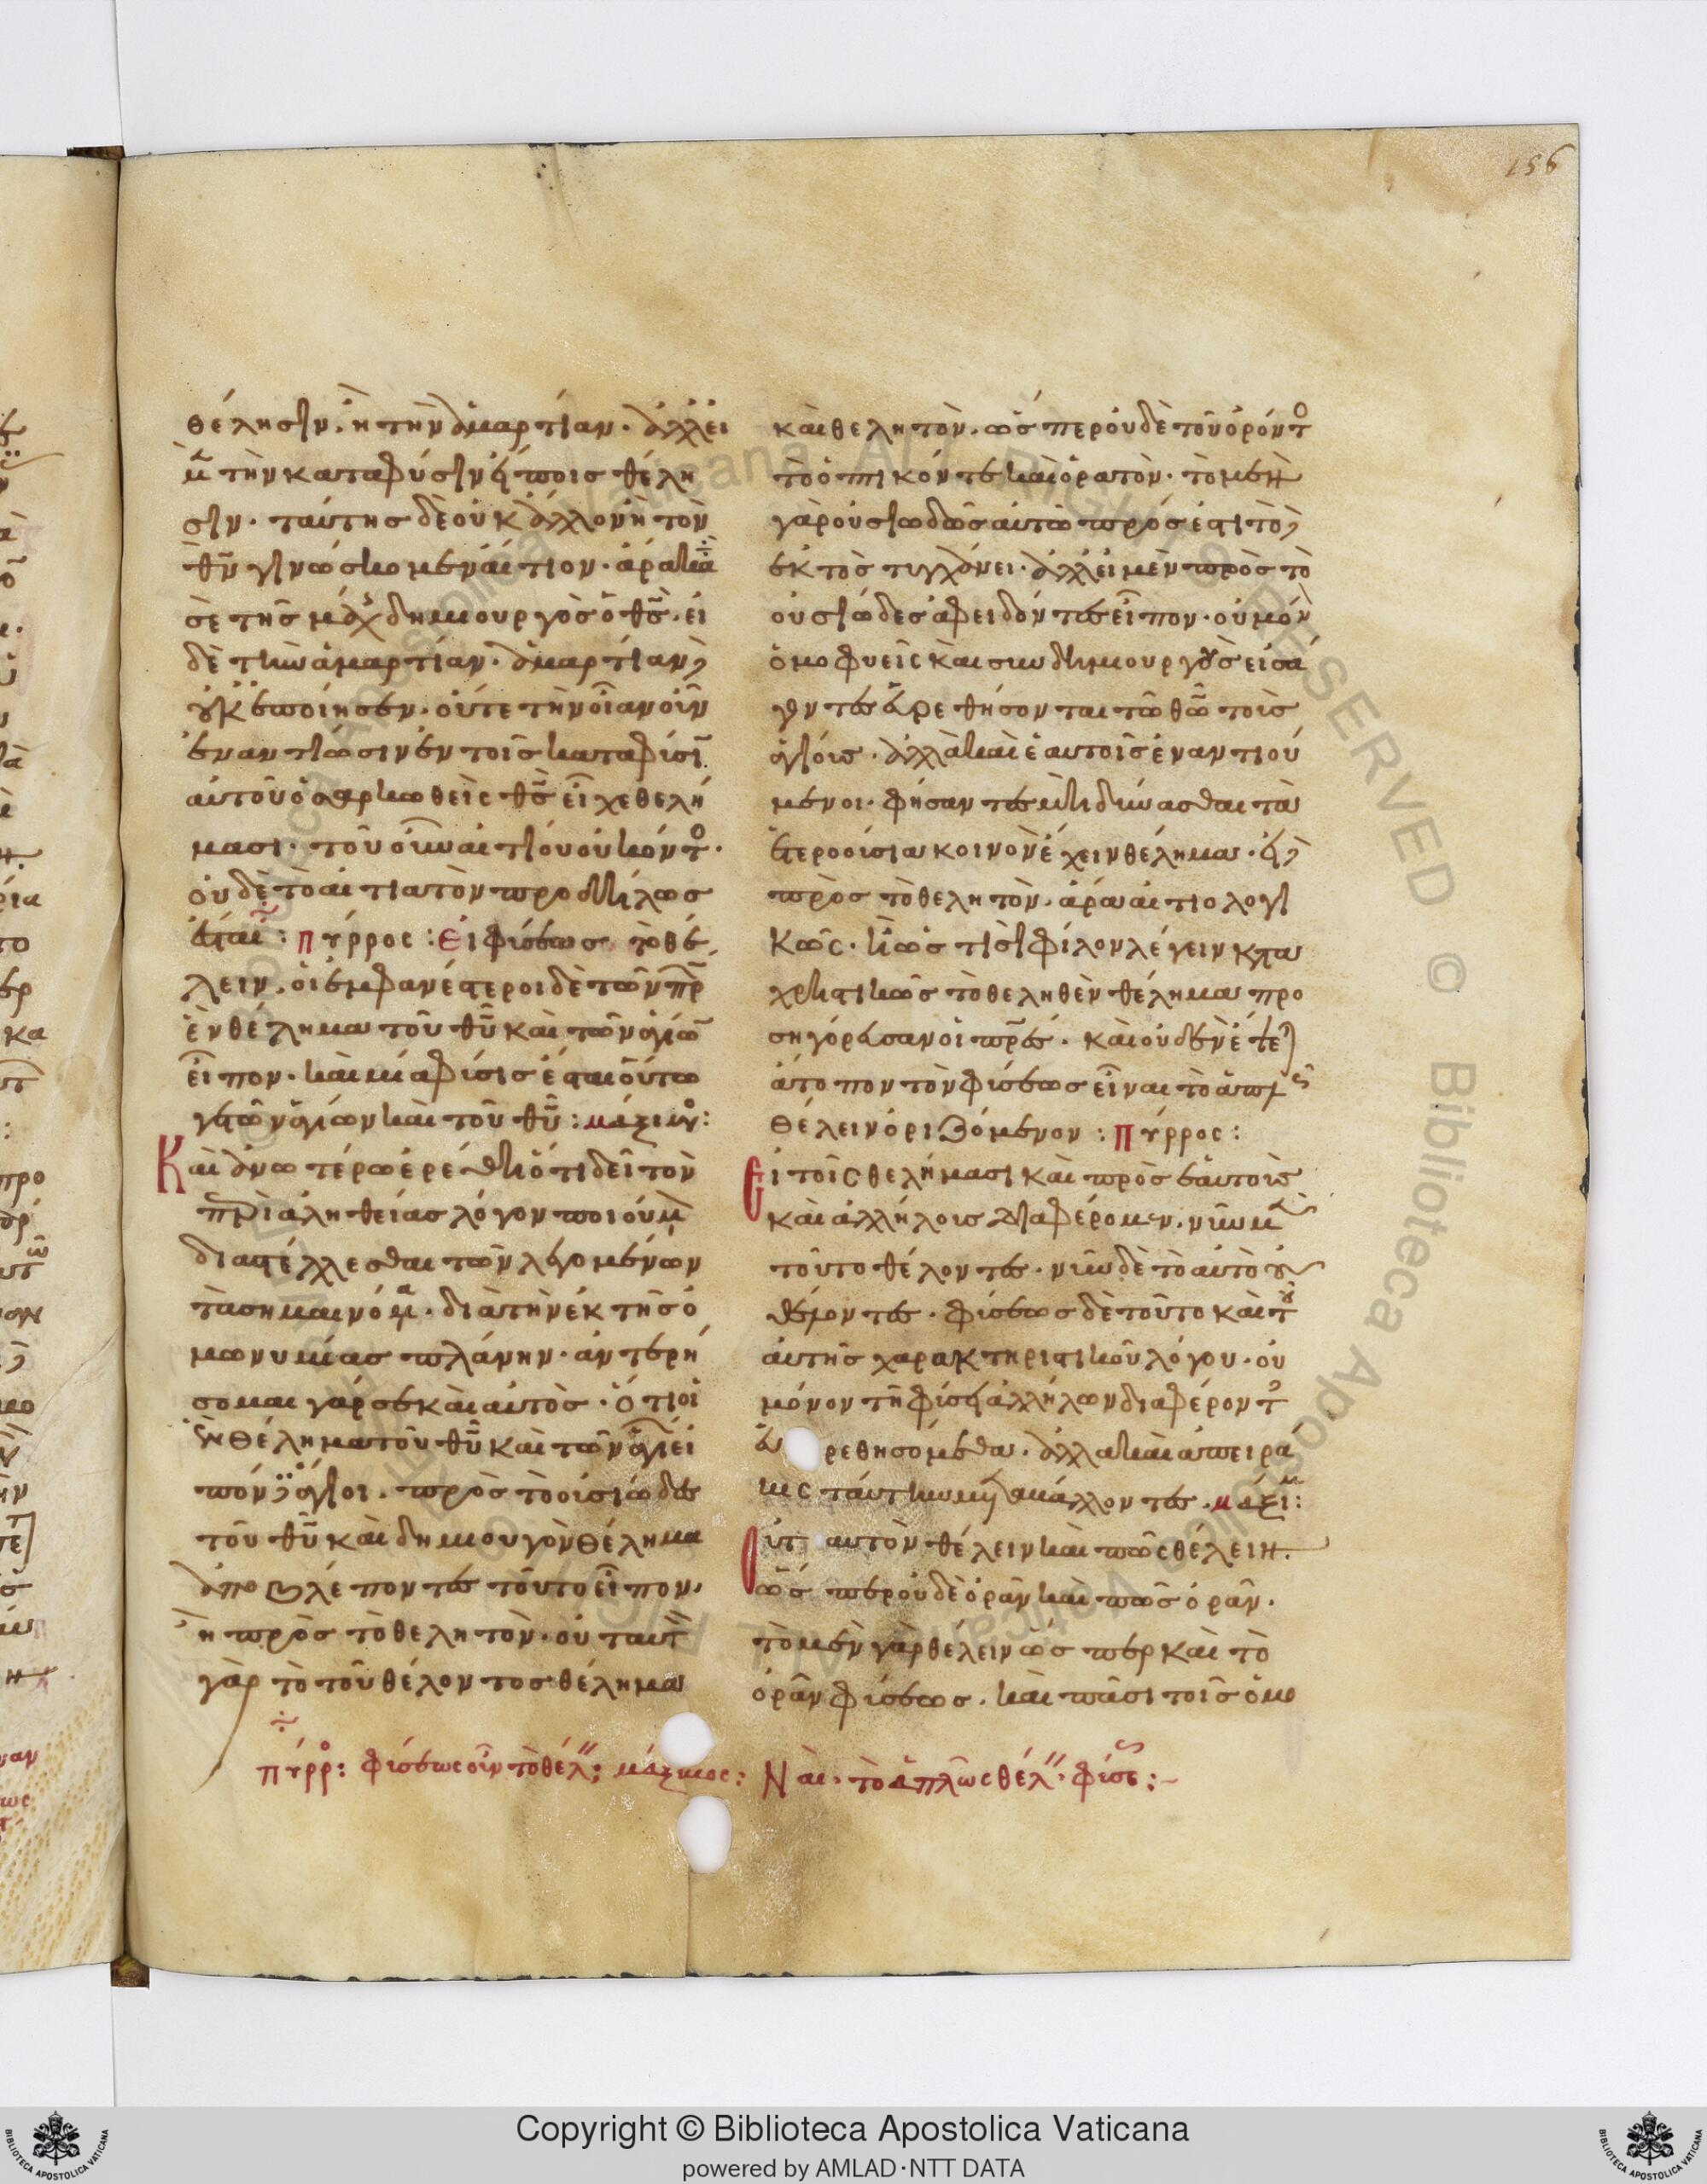 156
θέλησιν, ἢ τὴν ἁμαρτίαν· ἀλλ εἰ
μ τὴν κατα φύσιν εἴποις θέλη
σιν· ταύτης δὲ οὐκ ἄλλον ἢ τὸν
θν γινώσκομεν αἴτιον· ἄρα καὶ
σὲ τῆς μάχ δημιουργὸς ὁ θς· εἰ
δὲ τὴν ἁμαρτίαν· ἁμαρτίαν
οὐκ ἐποίησεν· οὔτε τὴν οἱανοῦν
ἐναντίωσιν ἐν τοῖς κατα φύσιν
αὐτοῦ ὁ σαρκωθεὶς θς εἶχε θελή
μασι· τοῦ οὖν αἰτίου οὐκ ὄντ·
οὐδὲ τὸ αἰτιατὸν προδήλως
ἔσται: πύρρος: Εἰ φύσεως τὸ θέ
λειν, οἱ ἐμφανέστεροι δὲ τῶν πρ
ἓν θέλημα τοῦ θυ καὶ τῶν ἁγίω
εἶπον· καὶ μία φύσις ἔσται οὕτω
γε τῶν ἁγίων καὶ τοῦ θυ: μάξιμο:
Καὶ ἀνωτέρω ἐρέθη ὅτι δεῖ τὸν
περὶ ἀληθείας λόγον ποιούμ
διαστέλλεσθαι τῶν λεγομένων
τὰ σημαινόμ· διὰ τὴν ἐκ τῆς ὁ
μωνυμίας πλάνην· ἀντερή
σομαι γάρ σε καὶ αὐτὸς· ὅτι οἱ
ἓν θέλημα τοῦ θυ καὶ τῶν ἁγί εἰ
πόν ἅγιοι· πρὸς τὸ οὐσιῶδες
τοῦ θυ καὶ δημιουγὸν θέλημα
ἀποβλέποντες τοῦτο εἶπον,
ἢ πρὸς τὸ θελητὸν· οὐ ταυτ
γὰρ τὸ τοῦ θέλοντος θέλημα
καὶ θελητὸν· ὥσπερ οὐδὲ τοῦ ὁρόντ
τὸ ὀπτικόν τε καὶ ὁρατὸν· τὸ μὲν
γὰρ οὐσιωδῶς αὐτῶ πρόσεστι τὸ
ἐκτὸς τυγχάνει· ἀλλ εἰ μὲν πρὸς τὸ
οὐσιῶδες ἀφειδόντες εἶπον· οὐ μόν
ὁμοφυεῖς καὶ συνδημιουργοὺς εἰσά
γοντες εὑρεθήσονται τῶ θω τοὺς
ἁγίους· ἀλλὰ καὶ ἑαυτοῖς ἐναντιού
μενοι· φήσαντες μὴ δύνασθαι τὰ
ἑτεροούσια κοινὸν ἔχειν θέλημα· εἰ
πρὸς τὸ θελητὸν· ἄρα αἰτιολογι
κῶς· ἢ ὥς τισι φίλον λέγειν κατα
χρηστικῶς τὸ θεληθὲν θέλημα προ
σηγόρευσαν οἱ πρες· καὶ οὐδὲν ἕψετ
ἄτοπον τὸν φύσεως εἶναι τὸ ἁπλ
θέλειν ὁριζόμενον: πύρρος:
Εἰ τοῖς θελήμασι καὶ πρὸς ἑαυτοὺς
καὶ ἀλλήλοις διαφέρομεν, νῦν μ
τοῦτο θέλοντες· νῦν δὲ τὸ αὐτὸ οὐ
θέλοντες· φύσεως δὲ τοῦτο καὶ τ
αὐτῆς χαρακτηριστικοῦ λόγου· οὐ
μόνον τῆ φύσει ἀλλήλων διαφέροντ
εὑρεθησόμεθα· ἀλλα καὶ ἀπειρά
κις ταύτην μεταβάλλοντες· μάξιμ:
Οὐ τ αυτὸν θέλειν καὶ πῶς θέλειν·
ὥσπερ οὐδὲ ὁρᾶν καὶ πῶς ὁρᾶν·
τὸ μὲν γὰρ θέλειν ὥσπερ καὶ τὸ
ὁρᾶν φύσεως· καὶ πᾶσι τοῖς ὁμο
πύρρο: φύσεως οὖν τὸ θέλ; μάξιμος: Ναὶ· τὸ ἁπλῶς θέλ· φύσε:
Copyright © Biblioteca Apostolica Vaticana
powered by AMLAD·NTT DATA